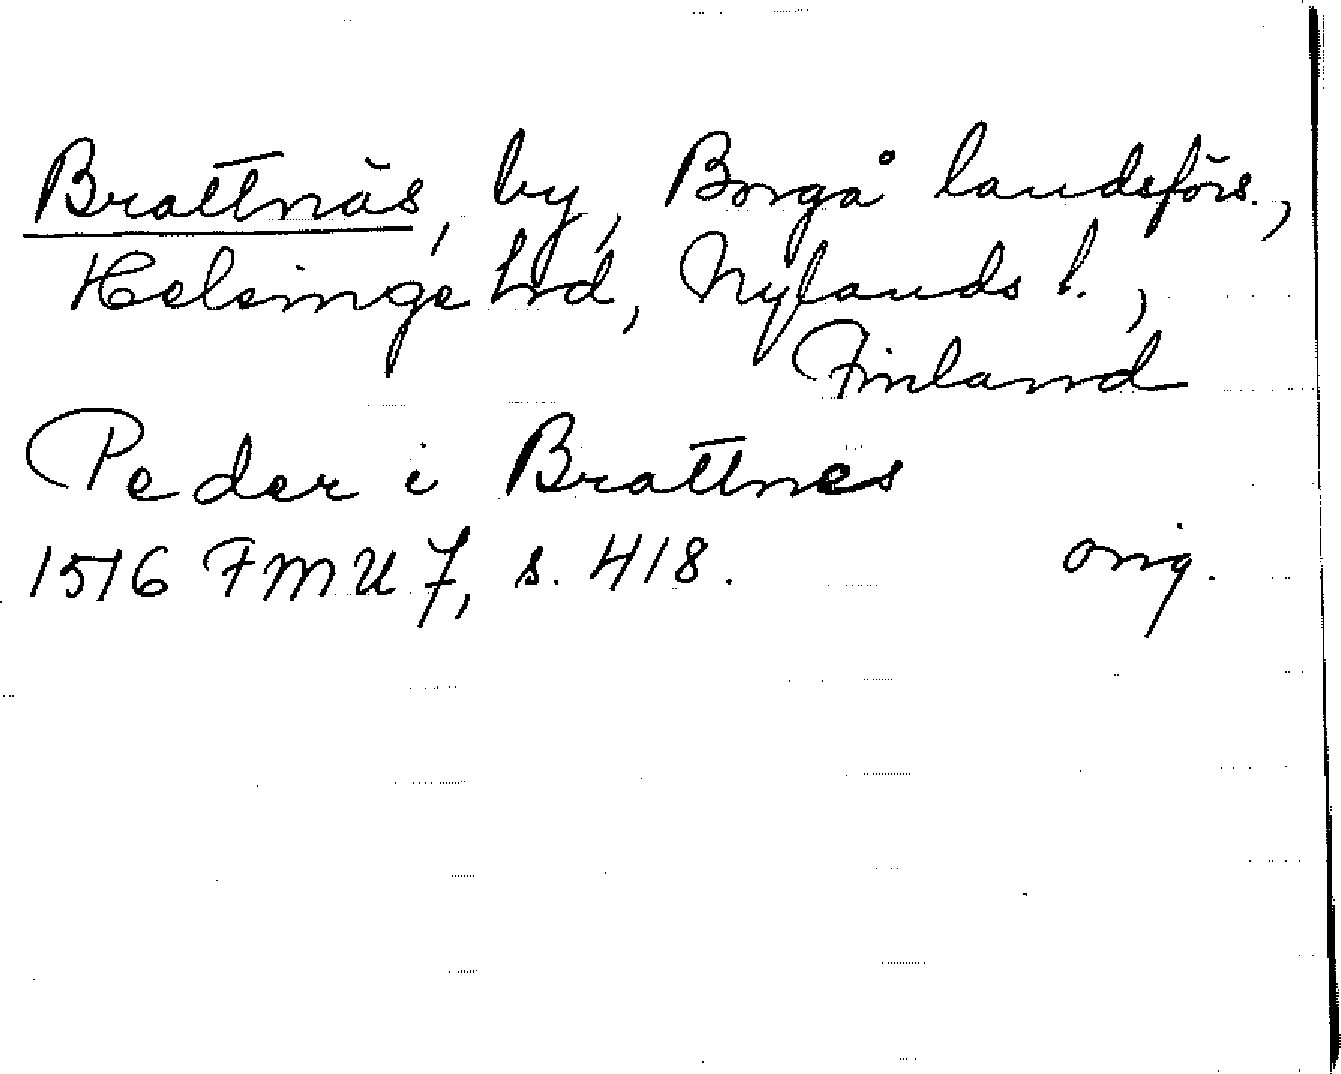 Brattnäs, by, Borgå landsförs.,
Helsinge hrd, Nylands l.,
Finland
Peder i Brattnes
1516 FMU 7, s. 418. orig.